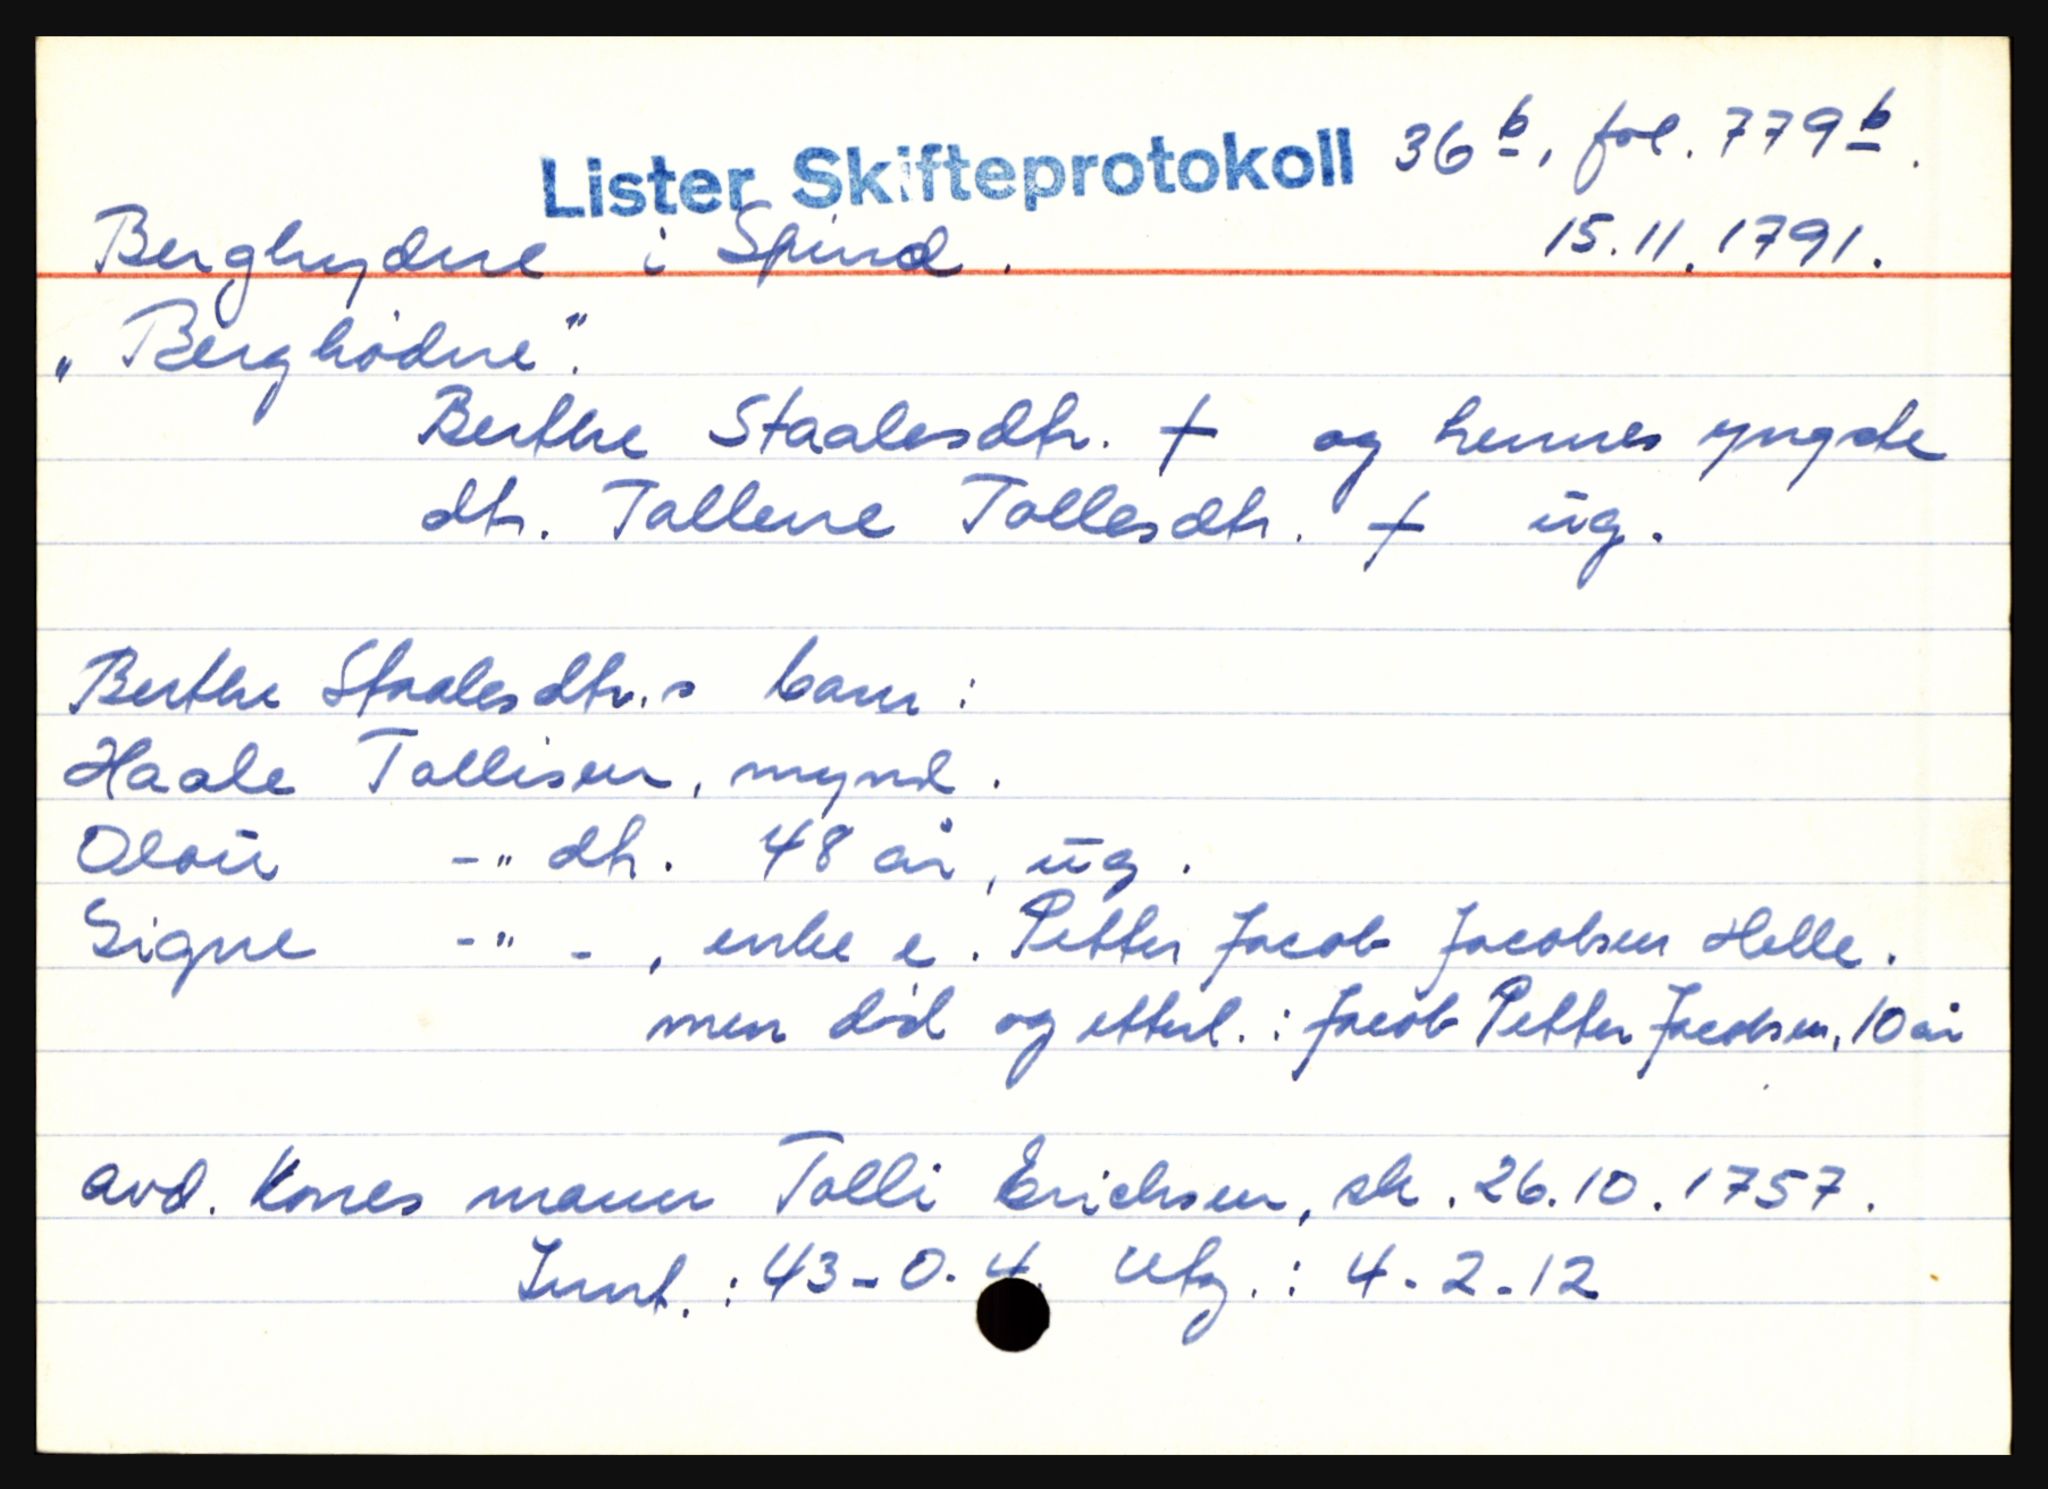 Lister Skifteprotokoll 36b, fol. 779b.
Berghydne i Spind. 15.11.1791.
„Berghødne".
Berthe Staalesdtr. † og hennes yngste
dtr. Tallene Tollesdtr. † ug.
Berthe Staalesdtr.s barn:
Haale Tollisen, mynd.
Olou -"- dtr. 48 år, ug.
Signe -"-, enke e. Petter Jacob Jacobsen Helle.
men død og etterl.: Jacob Petter Jacobsen, 10 år
avd. Kones mann Tolli Erichsen, sk. 26.10.1757.
Innt.: 43-0-4. Utg.: 4-2-12